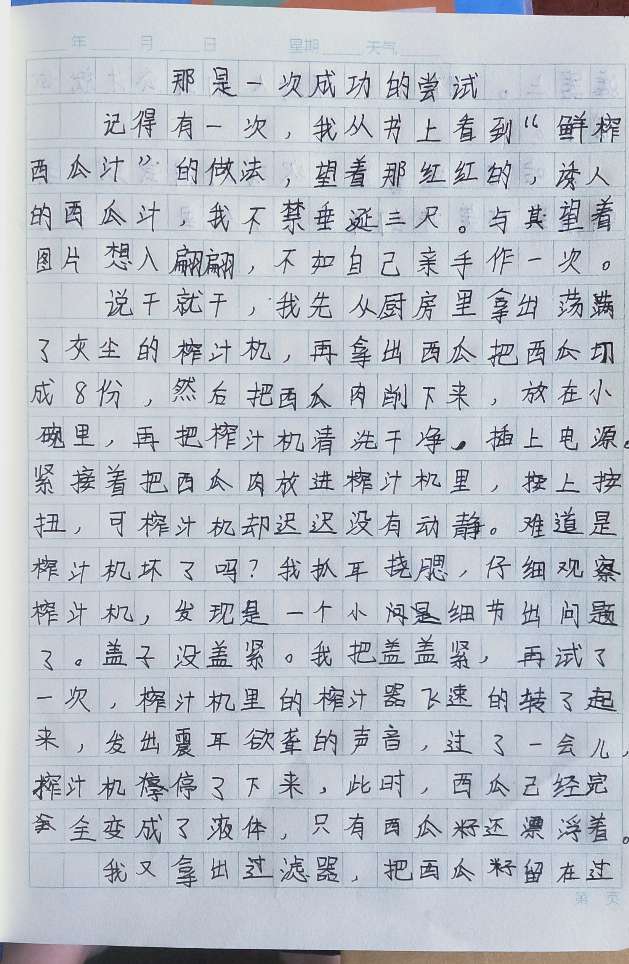 年 月 日 星期 天气
那是一次成功的尝试
记得有一次，我从书上看到“鲜榨
西瓜汁”的做法，望着那红红的，诱人
的西瓜汁，我不禁垂涎三尺。与其望着
图片想入翩翩，不如自己亲手作一次。
说干就干，我先从厨房里拿出荡满
了灰尘的榨汁机，再拿出西瓜把西瓜切
成8份，然后把西瓜肉削下来，放在小
碗里，再把榨汁机清洗干净。插上电源。
紧接着把西瓜肉放进榨汁机里，按上按
扭，可榨汁机却迟迟没有动静。难道是
榨汁机坏了吗？我抓耳挠腮，仔细观察
榨汁机，发现是一个小细节出问题
了。盖子没盖紧。我把盖盖紧，再试了
一次，榨汁机里的榨汁器飞速的转了起
来，发出震耳欲聋的声音，过了一会儿，
榨汁机停了下来，此时，西瓜已经完
全变成了液体，只有西瓜籽还漂浮着。
我又拿出过滤器，把西瓜籽留在过
第 页